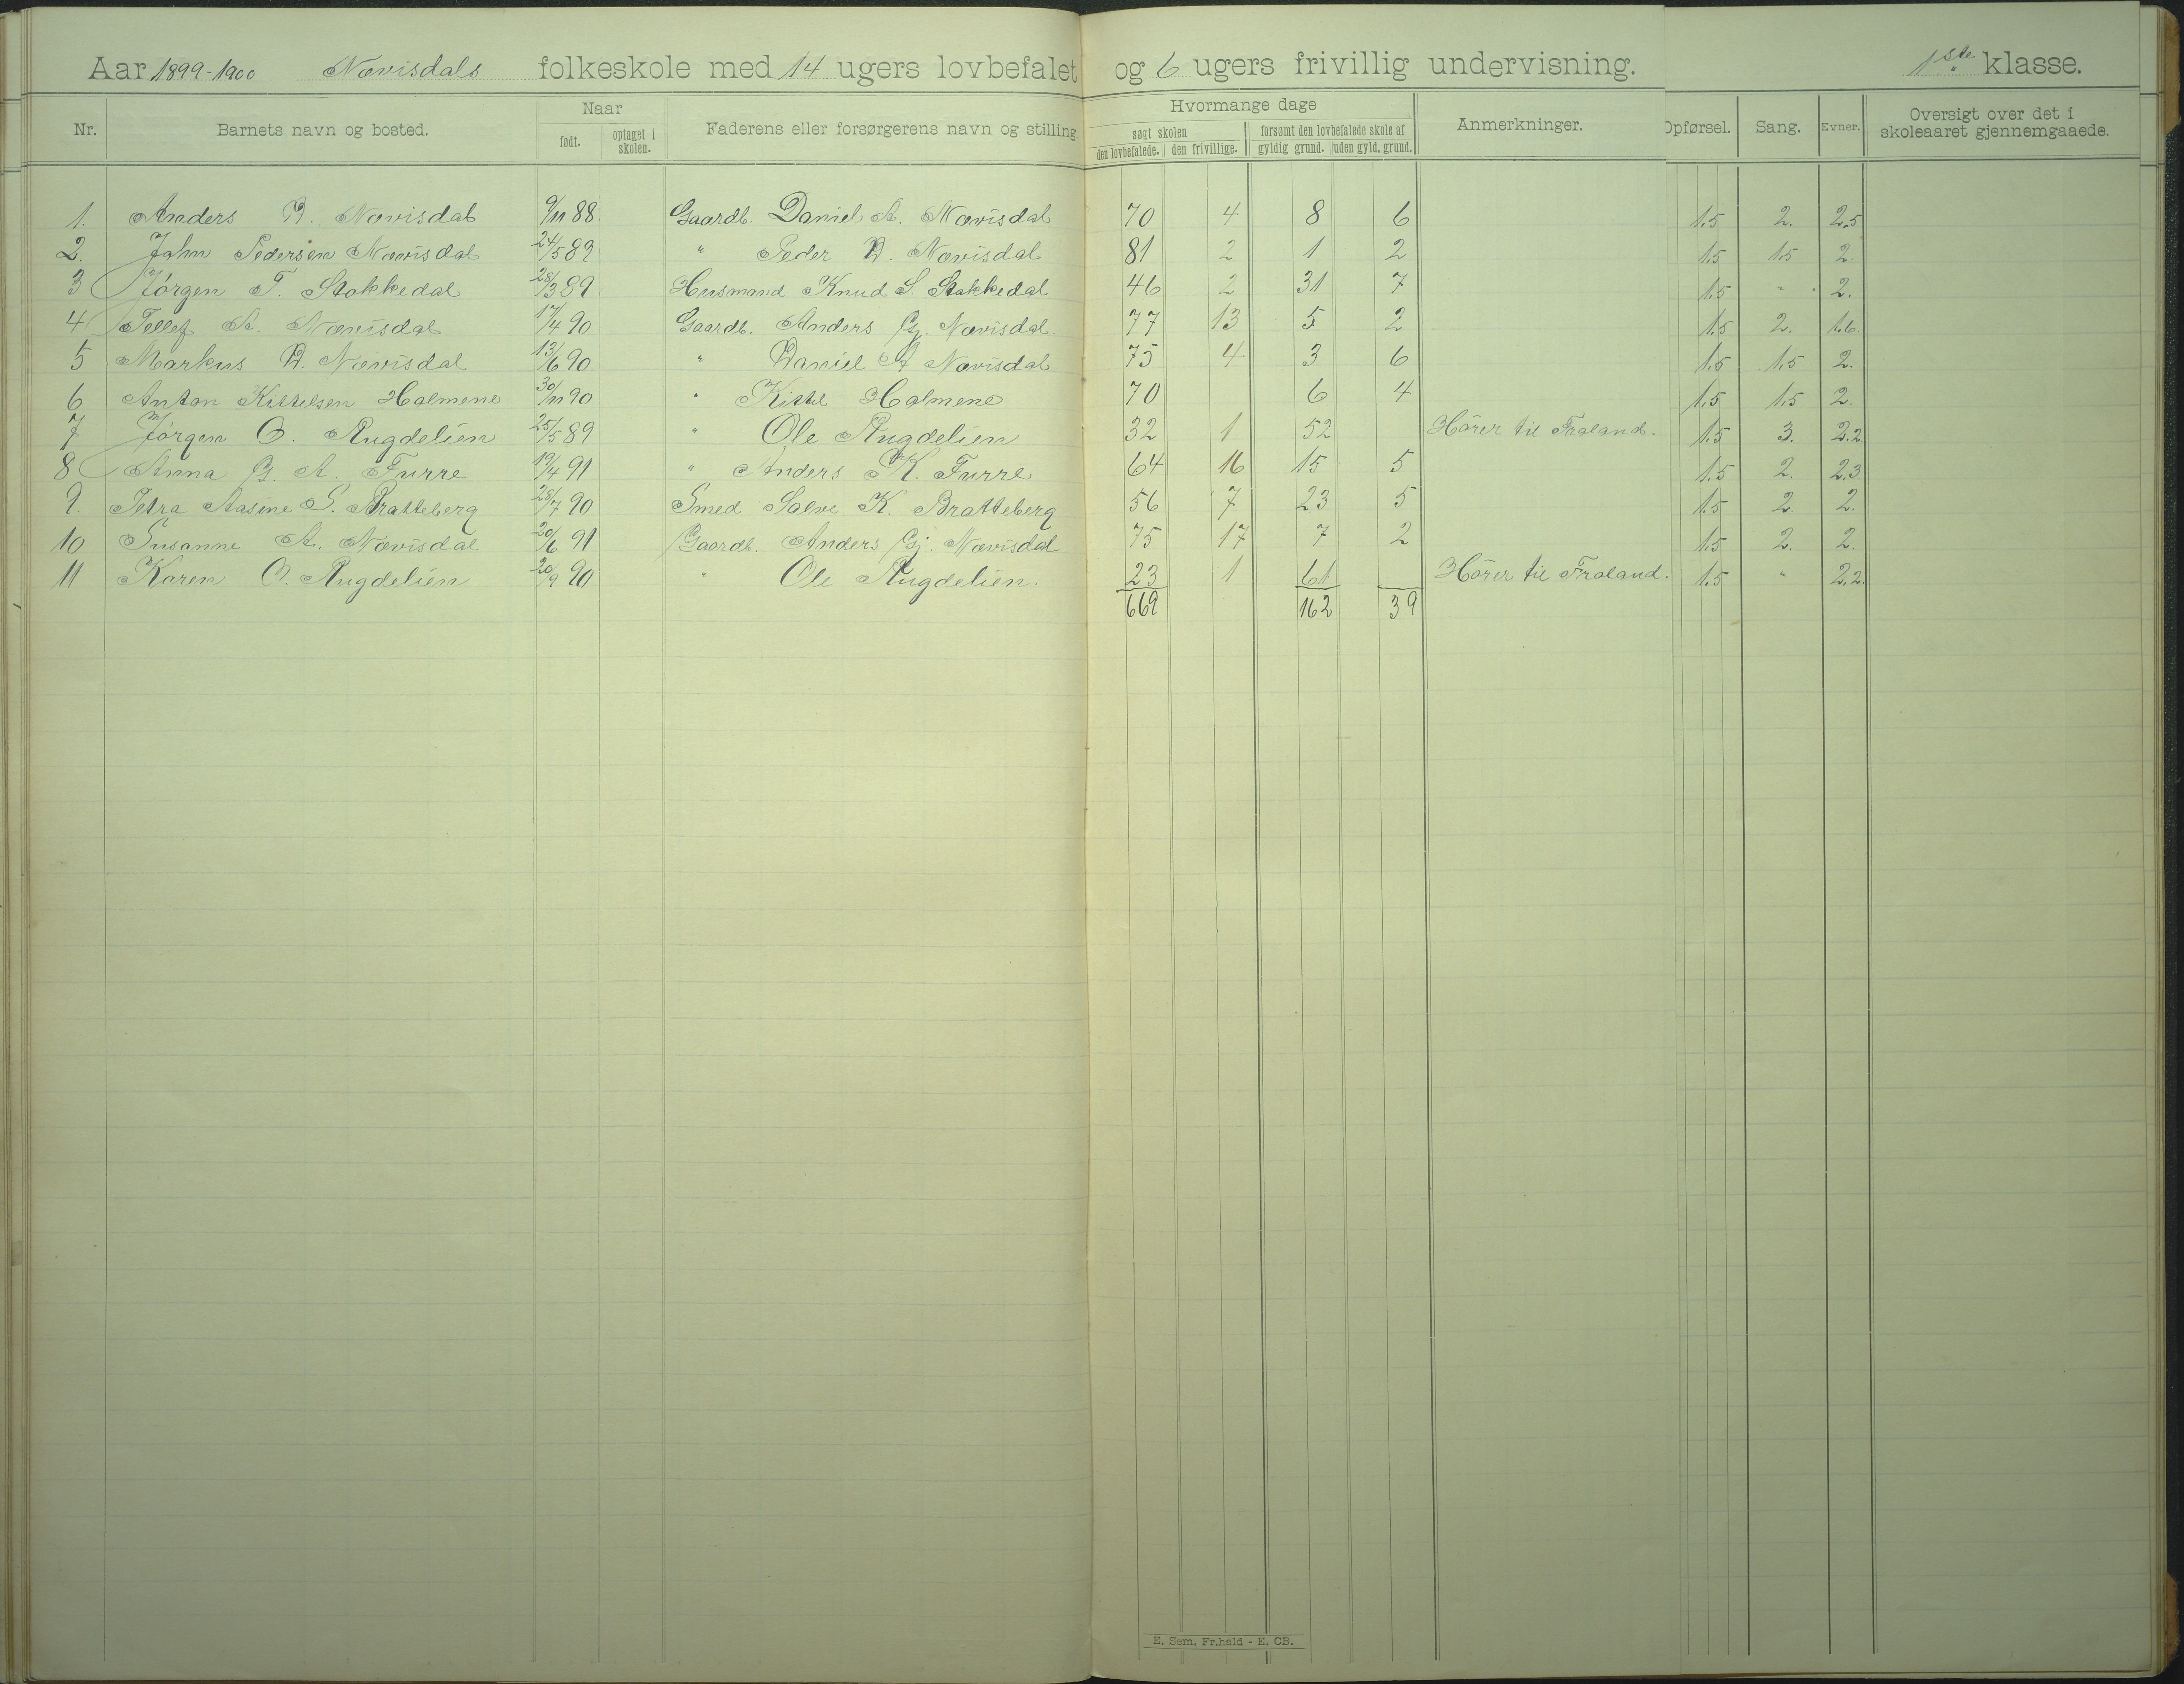 Aar 1899-1900 Nævisdals folkeskole med 14 ugers lovbefalet og 6 ugers frivillig undervisning. 1ste klasse.
Nr. Barnets navn og bosted. Naar født. optaget i skolen. Faderens eller forsørgerens navn og stilling. Hvormange dage søgt skolen den lovbefalede. den frivillige. forsømt den lovbefalede skole af gyldig grund. uden gyld. grund. Anmerkninger. Opførsel. Sang. Evner. Oversigt over det i skoleaaret gjennemgaaede.
1. Anders D. Nævisdal 9/11 88 Gaardb. Daniel A. Nævisdal 70 4 8 6 1.5 2. 2.5
2. John Pedersen Nævisdal 24/5 89 " Peder D. Nævisdal 81 2 1 2 1.5 1.5 2.
3 Jørgen T. Stokkedal 28/3 89 Husmand Knud S. Stokkedal 46 2 31 7 1.5 " 2.
4 Tellef A. Nævisdal 17/4 90 Gaardb. Anders Gj. Nævisdal 77 13 5 2 1.5 2. 1.6
5 Markus D. Nævisdal 13/6 90 " Daniel A Nævisdal 75 4 3 6 1.5 1.5 2.
6 Anton Kittelsen Holmene 30/11 90 " Kittel Holmene 70 6 4 1.5 1.5 2.
7 Jørgen O. Rugdelien 25/5 89 " Ole Rugdelien 32 1 52 Hører til Froland. 1.5 3. 2.2
8 Anna G. A. Furre 19/4 91 " Anders K. Furre 64 16 15 5 1.5 2. 2.3
9. Petra Aasine S. Bratteberg 28/7 90 Smed Salve K. Bratteberg 56 7 23 5 1.5 2. 2.
10 Susanne A. Nævisdal 20/6 91 Gaardb. Anders Gj. Nævisdal 75 17 7 2 1.5 2. 2.
11 Karen O. Rugdelien 20/9 90 " Ole Rugdelien. 23 1 61 Hører til Froland. 1.5 " 2.2.
669 162 39
E. Sem, Fr.hald - E. CB.